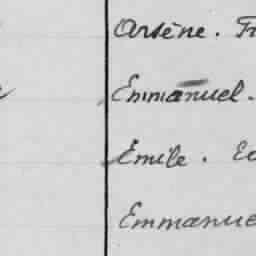 Arsène. Fr
Emmanuel.
Emile. Ed
Emmanue